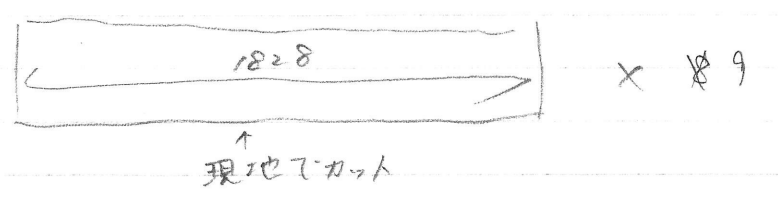 1828 × 9
↑
現地でカット